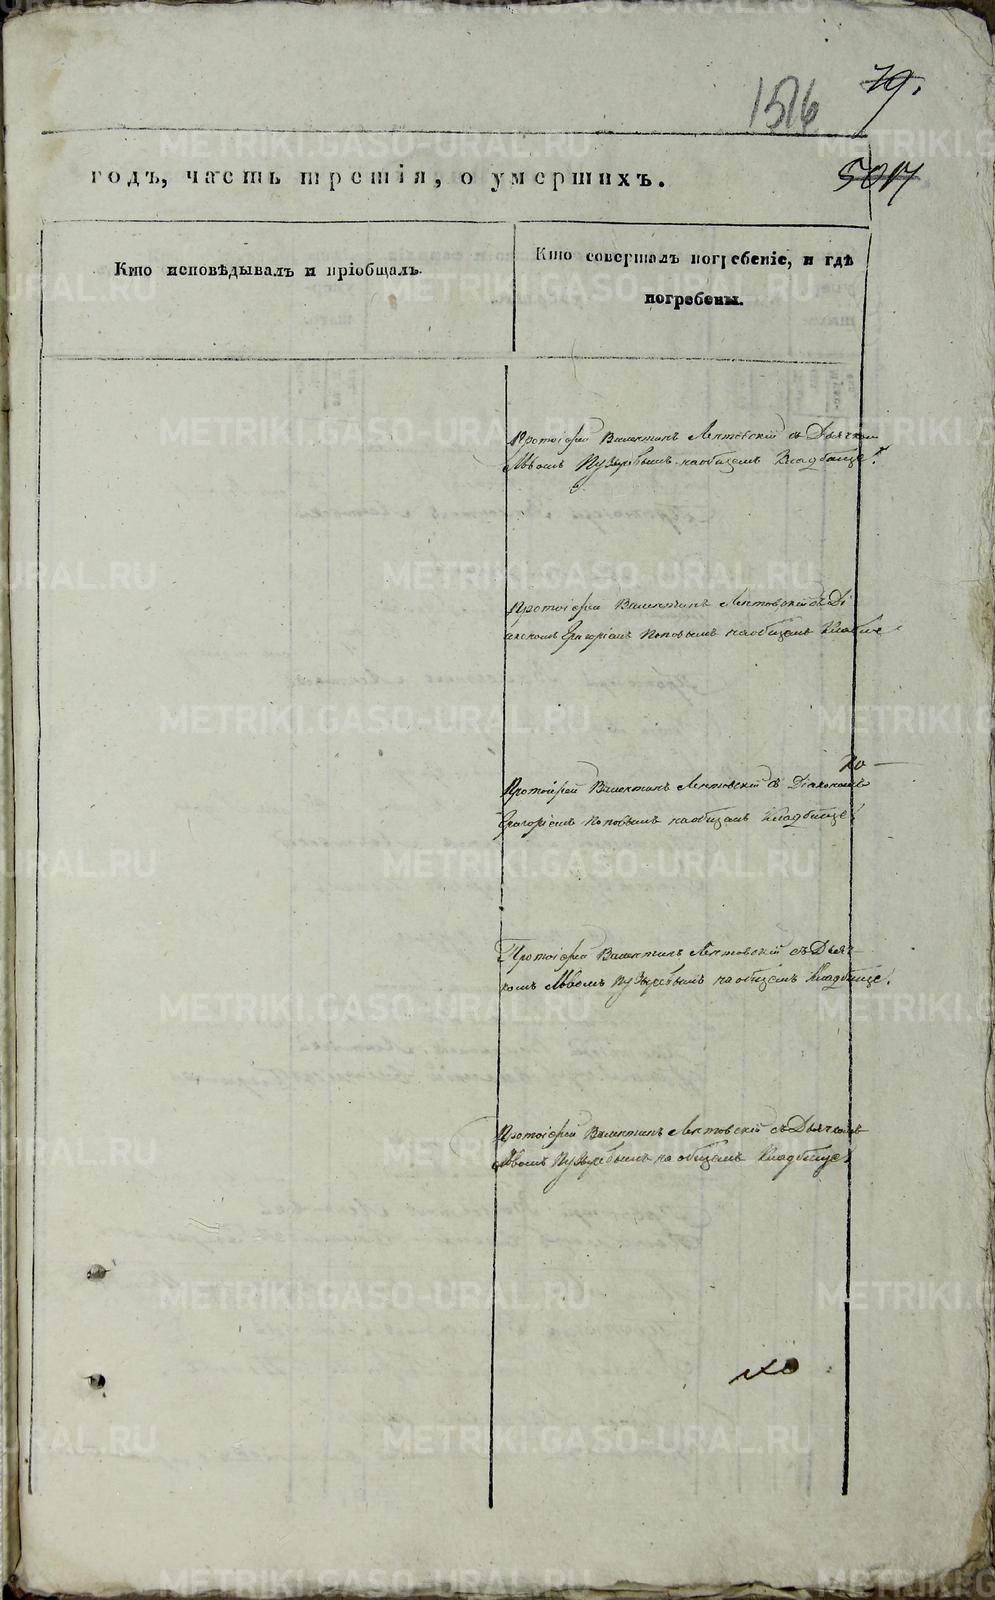 79.
1516
годъ, часть третія, о умершихъ.
Кто исповѣдывалъ и пріобщалъ.
Кто совершалъ погребеніе, и гдѣ
погребены.
Протоіерей Валентинъ Лектовскій съ Дьячкомъ
Львомъ Пузыревымъ на общемъ Кладбище.
Протоіерей Валентинъ Лектовскій съ Ді
акономъ Григоріемъ Поповымъ на общемъ
Протоіерей Валентинъ Лектовскій съ Діакономъ
Григоріемъ Поповымъ на общемъ Кладбище
Протоіерей Валентинъ Лектовскій съ Дьяч-
комъ Львомъ Пузыревымъ на общемъ Кладбище.
Протоіерей Валентинъ Лектовскій съ Дьячкомъ
Львомъ Пузыревымъ на общемъ Кладбище.
METRIKI.GASO-URAL.RU